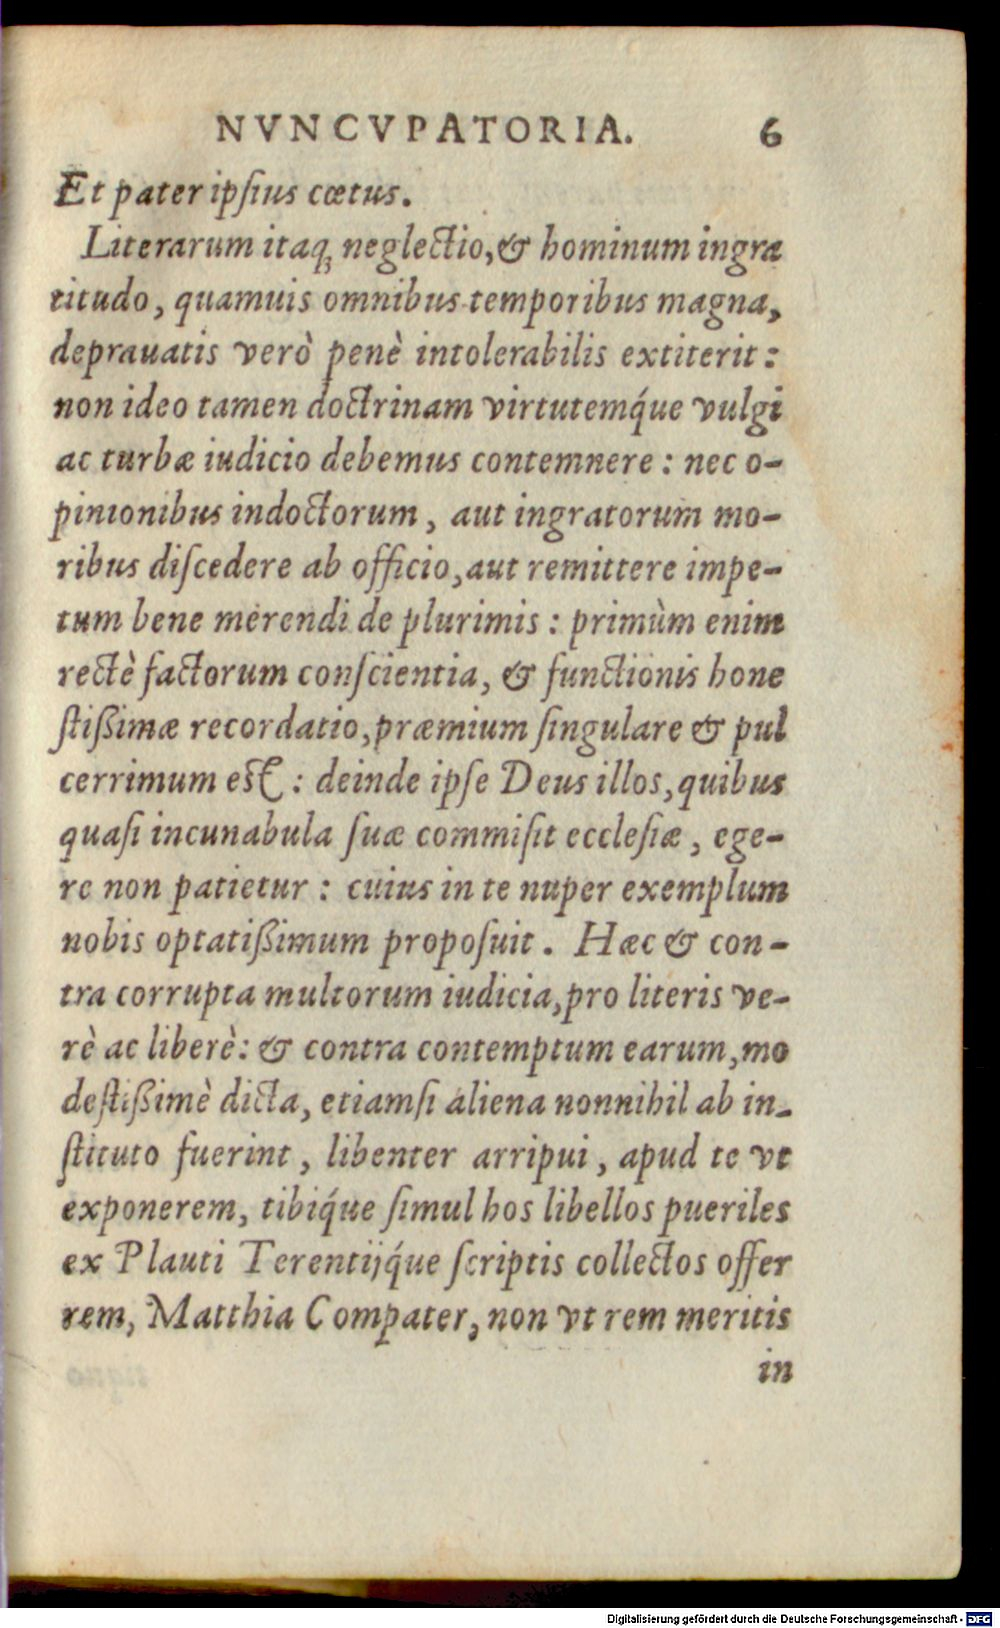 NVNCVPATORIA. 6
Et pater ipſius cœtus.
Literarum itaq; neglectio, & hominum ingra
titudo, quamuis omnibus temporibus magna,
deprauatis verò penè intolerabilis extiterit:
non ideo tamen doctrinam virtutemq́ue vulgi
ac turbæ iudicio debemus contemnere: nec o-
pinionibus indoctorum, aut ingratorum mo-
ribus diſcedere ab officio, aut remittere impe-
tum bene merendi de plurimis: primùm enim
rectè factorum conſcientia, & functionis hone
ſtißimæ recordatio, præmium ſingulare & pul
cerrimum est: deinde ipſe Deus illos, quibus
quaſi incunabula ſuæ commiſit eccleſiæ, ege-
re non patietur: cuius in te nuper exemplum
nobis optatißimum propoſuit. Hæc & con-
tra corrupta multorum iudicia, pro literis ve-
rè ac liberè: & contra contemptum earum, mo
deſtißimè dicta, etiamſi aliena nonnihil ab in-
ſtituto fuerint, libenter arripui, apud te vt
exponerem, tibiq́ue ſimul hos libellos pueriles
ex Plauti Terentijq́ue ſcriptis collectos offer
rem, Matthia Compater, non vt rem meritis
in
Digitalisierung gefördert durch die Deutsche Forschungsgemeinschaft - DFG